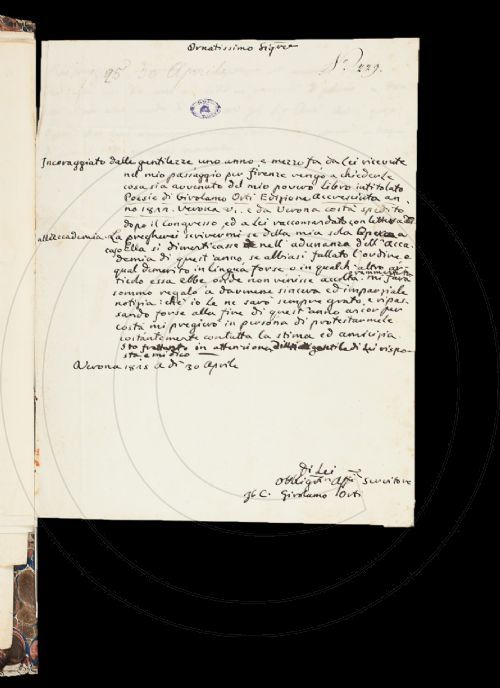 Ornatissimo Sigre
95 30 Aprile
N. 229.
Incoraggiato dalle gentilezze uno anno e mezzo fa da Lei ricevute
nel mio passaggio per Firenze vengo a chiederle
cosa sia avvenuto del mio povero Libro intitolato
Poesie di Girolamo Orti Edizione Accresciuta an
no 1811. Verona e da Verona costà spedito
dopo il Congresso ed a Lei raccomandato con lettera
all'Accademia. La pregherei scrivermi se della mia sola Opera a
caso Ella si dimenticasse nell'adunanza dell'Acca
demia di quest'anno, se abbiasi fallato l'ordine, o
qual demerito in Lingua forse o in qualch altro ar
ticolo essa ebbe onde non venisse accolta. mi farà
sommo regalo a darmene sincera ed imparziale
notizia: chè io le ne sarò sempre grato, e ripas
sando forse alla fine di quest'anno ancor per
costà mi pregierò in persona di protestarmele
costantemente con tutta la stima ed amicizia.
Sto frattanto in attenzione di gentile di Lei rispo
sta e mi dico
Verona 1815 A dì 30 Aprile
Di Lei
Obbligmo Affo Servitore
C. Girolamo Orti